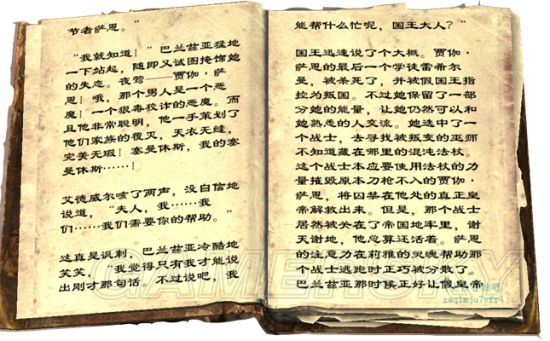 节者萨恩。”
“我就知道！”巴兰兹亚猛地
一下站起，随即又试图掩饰她
的失态。夜莺——贾伽·萨
恩！哦，那个男人是一个恶
魔！一个狠毒狡诈的恶魔。而
且他非常聪明，他一手策划了
他们家族的覆灭，天衣无缝，
完美无瑕！塞曼休斯，我的塞
曼休斯……！
艾德威尔咳了两声，没自信地
说道，“夫人，我……我
们……我们需要你的帮助。”
这真是讽刺，巴兰兹亚冷酷地
笑笑，“我觉得只有我才能说
出刚才那句话。不过说吧，我
能帮什么忙呢，国王大人？”
国王迅速说了个大概。贾伽·
萨恩的最后一个学徒雷希尔
曼，被杀死了，并被假国王指
控为叛国。不过她保留了一部
分她的能量，让她仍然可以和
她熟悉的人交流。她选中了一
个战士，去寻找被叛变的巫师
不知道藏在哪里的混沌法杖。
这个战士本应要使用法杖的力
量摧毁原本刀枪不入的贾伽·
萨恩，将囚禁在他处的真正皇
帝解救出来。但是，那个战士
居然被关在了帝国地牢里，谢
天谢地，他总算还活着。萨恩
的注意力在莉雅的灵魂帮助那
个战士逃跑时正巧被分散了。
巴兰兹亚那时候正好让假皇帝
GAMERSKY
zaqimju7vfr4